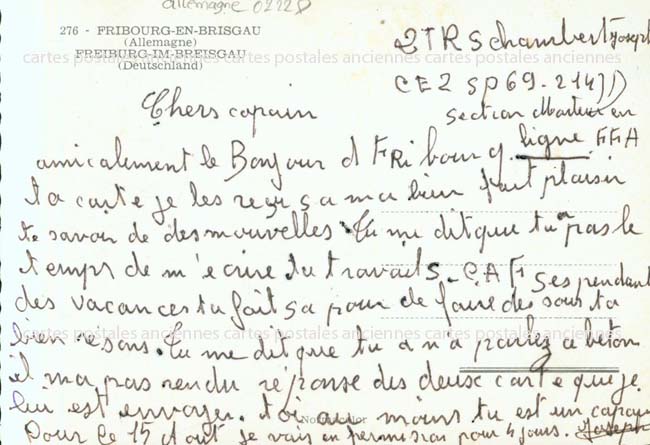 allemagne 0222D
276 - FRIBOURG-EN-BRISGAU
(Allemagne)
FREIBURG-IM-BREISGAU
(Deutschland)
2TR Schambert Joseph
CE2 SP69-214
section en
ligne FFA
Chers copain
amicalement le Bonjour d FRibourg
ta carte je les reçu sa ma bien fait plaisir
te savoir de des nouvelles. Tu me dit que tu a pas le
temps de m'ecrire tu travail S.C.A.F ses pendant
des vacances tu fait sa pour de faire des sous ta
bien resons. Tu me dit que tu a a parlez a beton
il ma pas rendu réponse des deux carte que je
lui est envoyer. toi au moins tu est un copain
Pour le 15 Aout je vais en permission pour 4 jours. Joseph
cartes postales anciennes cartes postales anciennes cartes postales anciennes
cartes postales anciennes cartes postales anciennes cartes postales anciennes